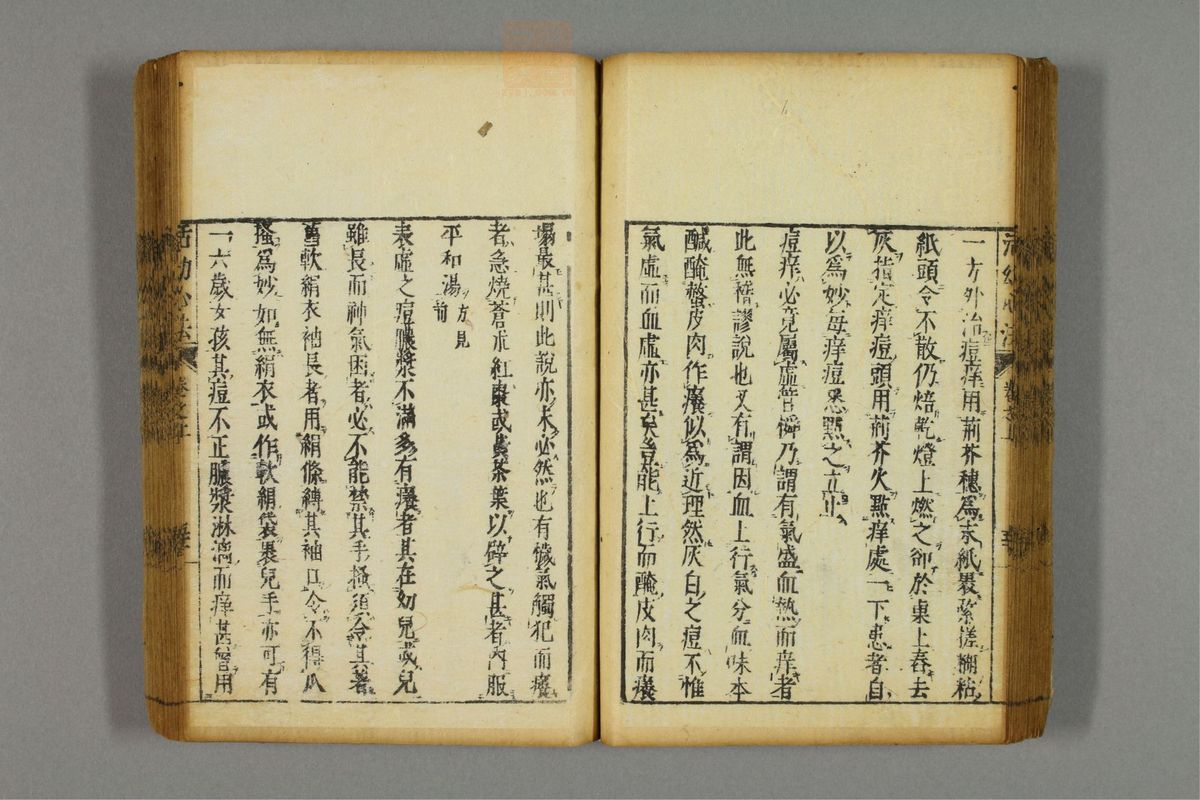 一方外治痘痒用荊芥穗為末紙裹緊搓糊粘
紙頭令不散仍焙乾燈上燃之卻於桌上舂去
灰指定痒痘頭用荊芥火點痒處一下患者自
以為妙每痒痘悉點之立止
痘痒必竟屬虛管橓乃謂有氣盛血熱而痒者
此無稽謬說也又有謂因血上行氣分血味本
鹹醃螫皮肉作癢似為近理然灰白之痘不惟
氣虛而血虛亦甚矣豈能上行而醃皮肉而癢
塌最甚則此說亦未必然也有穢氣觸犯而癢
者急燒蒼朮紅棗或臭茶葉以辟之甚者內服
平和湯方見前
表虛之痘膿漿不滿多有癢者其在幼兒或兒
雖長而神氣困者必不能禁其手搔須令其著
舊軟絹衣袖長者用絹條縛其袖口令不得爪
搔為妙如無絹衣或作軟絹袋裹兒手亦可有
一六歲女孩其痘不正膿漿淋漓而痒甚曾用
活幼心法 卷之上